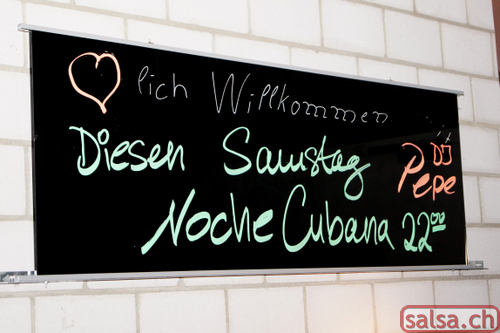 ♡lich Willkommen
Diesen Samstag DJ Pepe
Noche Cubana 22⁰⁰
salsa.ch